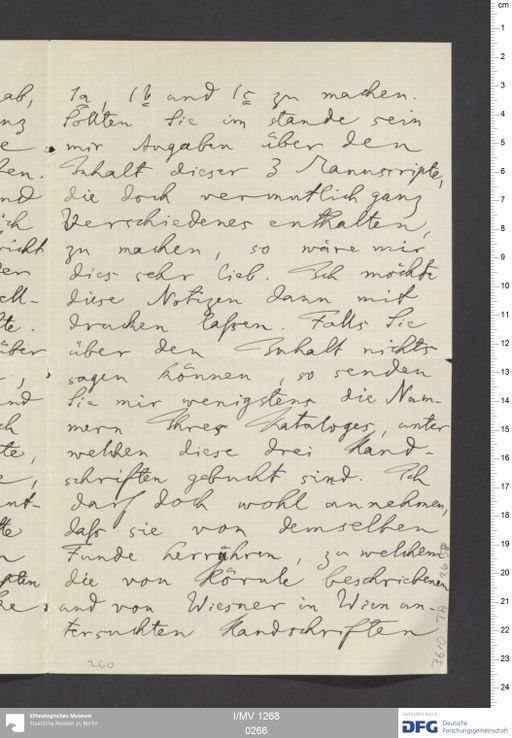 1a, 1b und 1c zu machen.
Sollten Sie im stande sein
mir Angaben über den
Inhalt dieser 3 Manuscripte,
die doch vermutlich ganz
Verschiedenes enthalten,
zu machen, so wäre mir
dies sehr lieb. Ich möchte
diese Notizen dann mit
drucken laßen. Falls Sie
über den Inhalt nichts
sagen können, so senden
Sie mir wenigstens die Num-
mern Ihres Kataloges, unter
welchen diese drei Hand-
schriften gebucht sind. Ich
darf doch wohl annehmen,
daß sie von demselben
Funde herrühren, zu welchem
die von Hörnle beschriebenen
und von Wiesner in Wien un-
tersuchten Handschriften
260
I/MV 1268
0266
Ethnologisches Museum
Staatliche Museen zu Berlin
Gefördert durch
DFG Deutsche
Forschungsgemeinschaft
cm
1
2
3
4
5
6
7
8
9
10
11
12
13
14
15
16
17
18
19
20
21
22
23
24